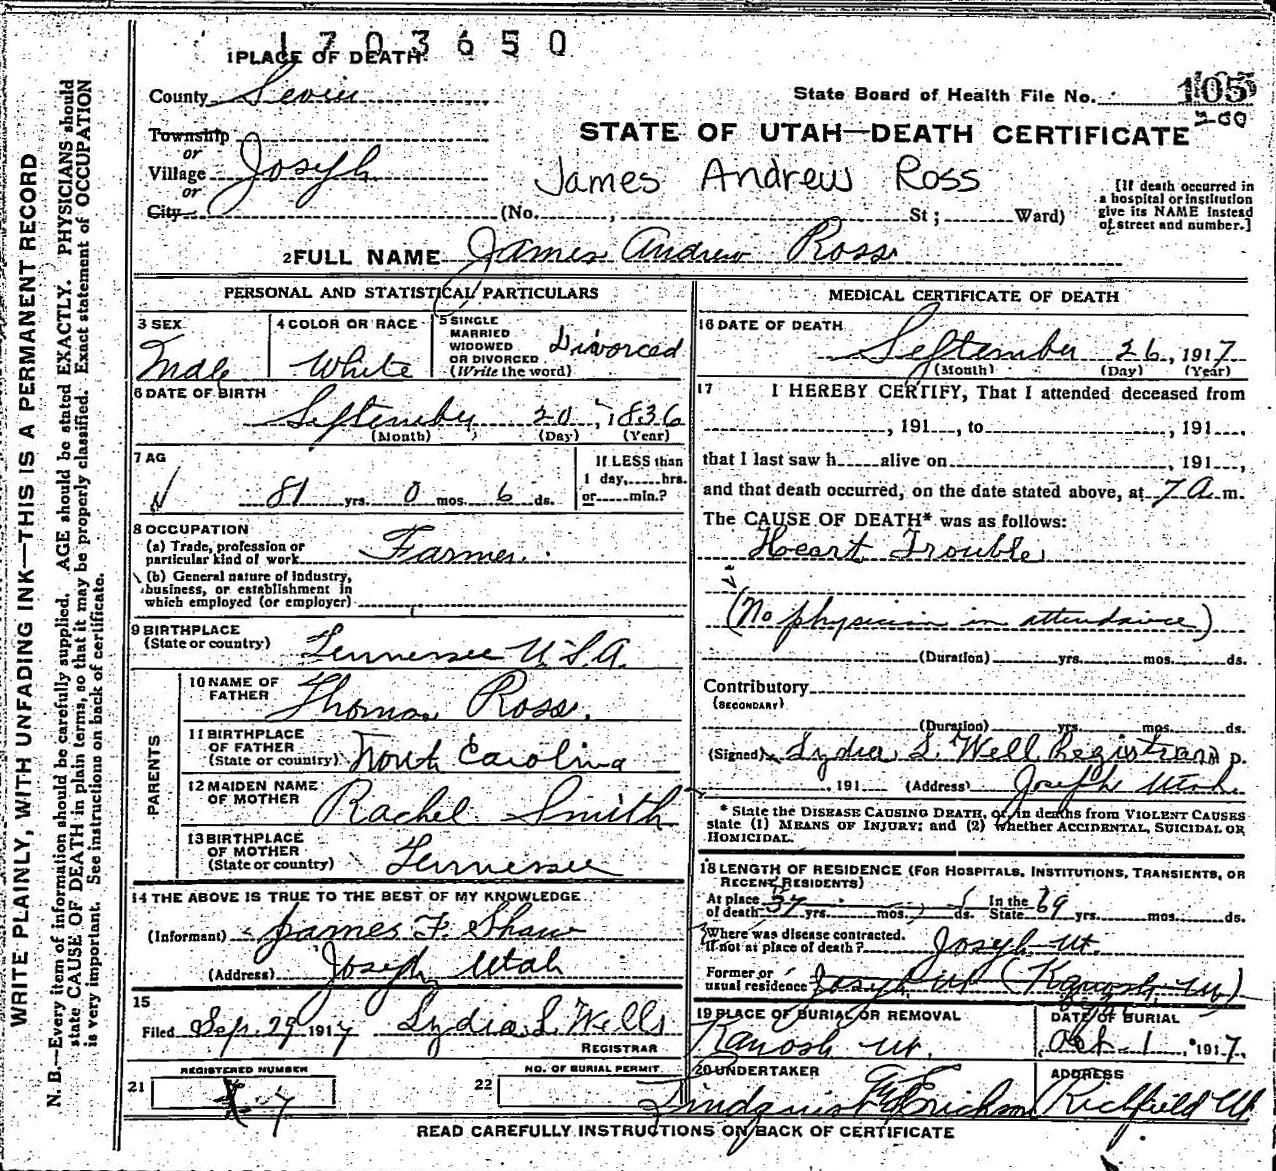 1703650
1 PLACE OF DEATH
County Sevier
State Board of Health File No. 105
200
Township
or
Village Joseph
or
City
STATE OF UTAH—DEATH CERTIFICATE
James Andrew Ross
(No. , St ; Ward)
[If death occurred in
a hospital or institution
give its NAME instead
of street and number.]
2 FULL NAME James Andrew Ross
PERSONAL AND STATISTICAL PARTICULARS
3 SEX
Male
4 COLOR OR RACE
White
5 SINGLE
MARRIED
WIDOWED
OR DIVORCED
(Write the word)
Divorced
6 DATE OF BIRTH
September 20, 1836
(Month) (Day) (Year)
7 AG
81 yrs. 0 mos. 6 ds.
If LESS than
1 day, hrs.
or min.?
8 OCCUPATION
(a) Trade, profession or
particular kind of work Farmer
(b) General nature of industry,
business, or establishment in
which employed (or employer)
9 BIRTHPLACE
(State or country) Tennessee U.S.A.
PARENTS
10 NAME OF
FATHER Thomas Ross.
11 BIRTHPLACE
OF FATHER
(State or country) North Carolina
12 MAIDEN NAME
OF MOTHER Rachel Smith
13 BIRTHPLACE
OF MOTHER
(State or country) Tennessee
14 THE ABOVE IS TRUE TO THE BEST OF MY KNOWLEDGE
(Informant) James F. Shaw
(Address) Joseph Utah
15
Filed Sep. 29 1917 Lydia S. Wells
REGISTRAR
21 REGISTERED NUMBER
7
22 NO. OF BURIAL PERMIT
MEDICAL CERTIFICATE OF DEATH
16 DATE OF DEATH
September 26, 1917
(Month) (Day) (Year)
17 I HEREBY CERTIFY, That I attended deceased from
, 191 , to , 191 ,
that I last saw h alive on , 191 ,
and that death occurred, on the date stated above, at 7 A m.
The CAUSE OF DEATH* was as follows:
Heart Trouble
(No physician in attendance)
(Duration) yrs. mos. ds.
Contributory
(SECONDARY)
(Duration) yrs. mos. ds.
(Signed) Lydia S. Well Registrar D.
, 191 (Address) Joseph Utah.
* State the DISEASE CAUSING DEATH, or, in deaths from VIOLENT CAUSES
state (1) MEANS OF INJURY; and (2) whether ACCIDENTAL, SUICIDAL OR
HOMICIDAL.
18 LENGTH OF RESIDENCE (FOR HOSPITALS, INSTITUTIONS, TRANSIENTS, OR
RECENT RESIDENTS)
At place
of death 37 yrs. mos. ds. In the
State 69 yrs. mos. ds.
Where was disease contracted.
if not at place of death? Joseph Ut.
Former or
usual residence Joseph Ut (Kanosh Ut)
19 PLACE OF BURIAL OR REMOVAL
Kanosh Ut.
DATE OF BURIAL
Oct 1, 1917.
20 UNDERTAKER
ADDRESS
Richfield Ut
READ CAREFULLY INSTRUCTIONS ON BACK OF CERTIFICATE
WRITE PLAINLY, WITH UNFADING INK—THIS IS A PERMANENT RECORD
N. B.—Every item of information should be carefully supplied. AGE should be stated EXACTLY. PHYSICIANS should
state CAUSE OF DEATH in plain terms, so that it may be properly classified. Exact statement of OCCUPATION
is very important. See instructions on back of certificate.